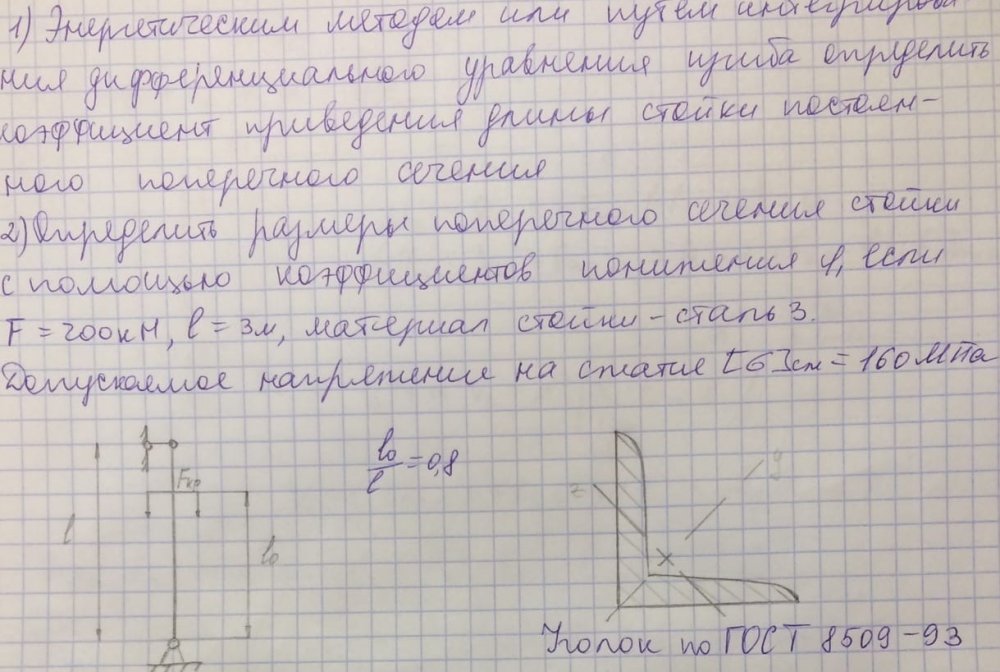 1) Энергетическим методом или путем интегрирова-
ния дифференциального уравнения изгиба определить
коэффициент приведения длины стойки постоян-
ного поперечного сечения
2) Определить размеры поперечного сечения стойки
с помощью коэффициентов понижения φ, если
F = 200кН, l = 3м, материал стойки - сталь 3.
Допускаемое напряжение на сжатие [σ]сж = 160 МПа
Fкр
l
l₀
l₀/l = 0,8
z
x
Уголок по ГОСТ 8509-93